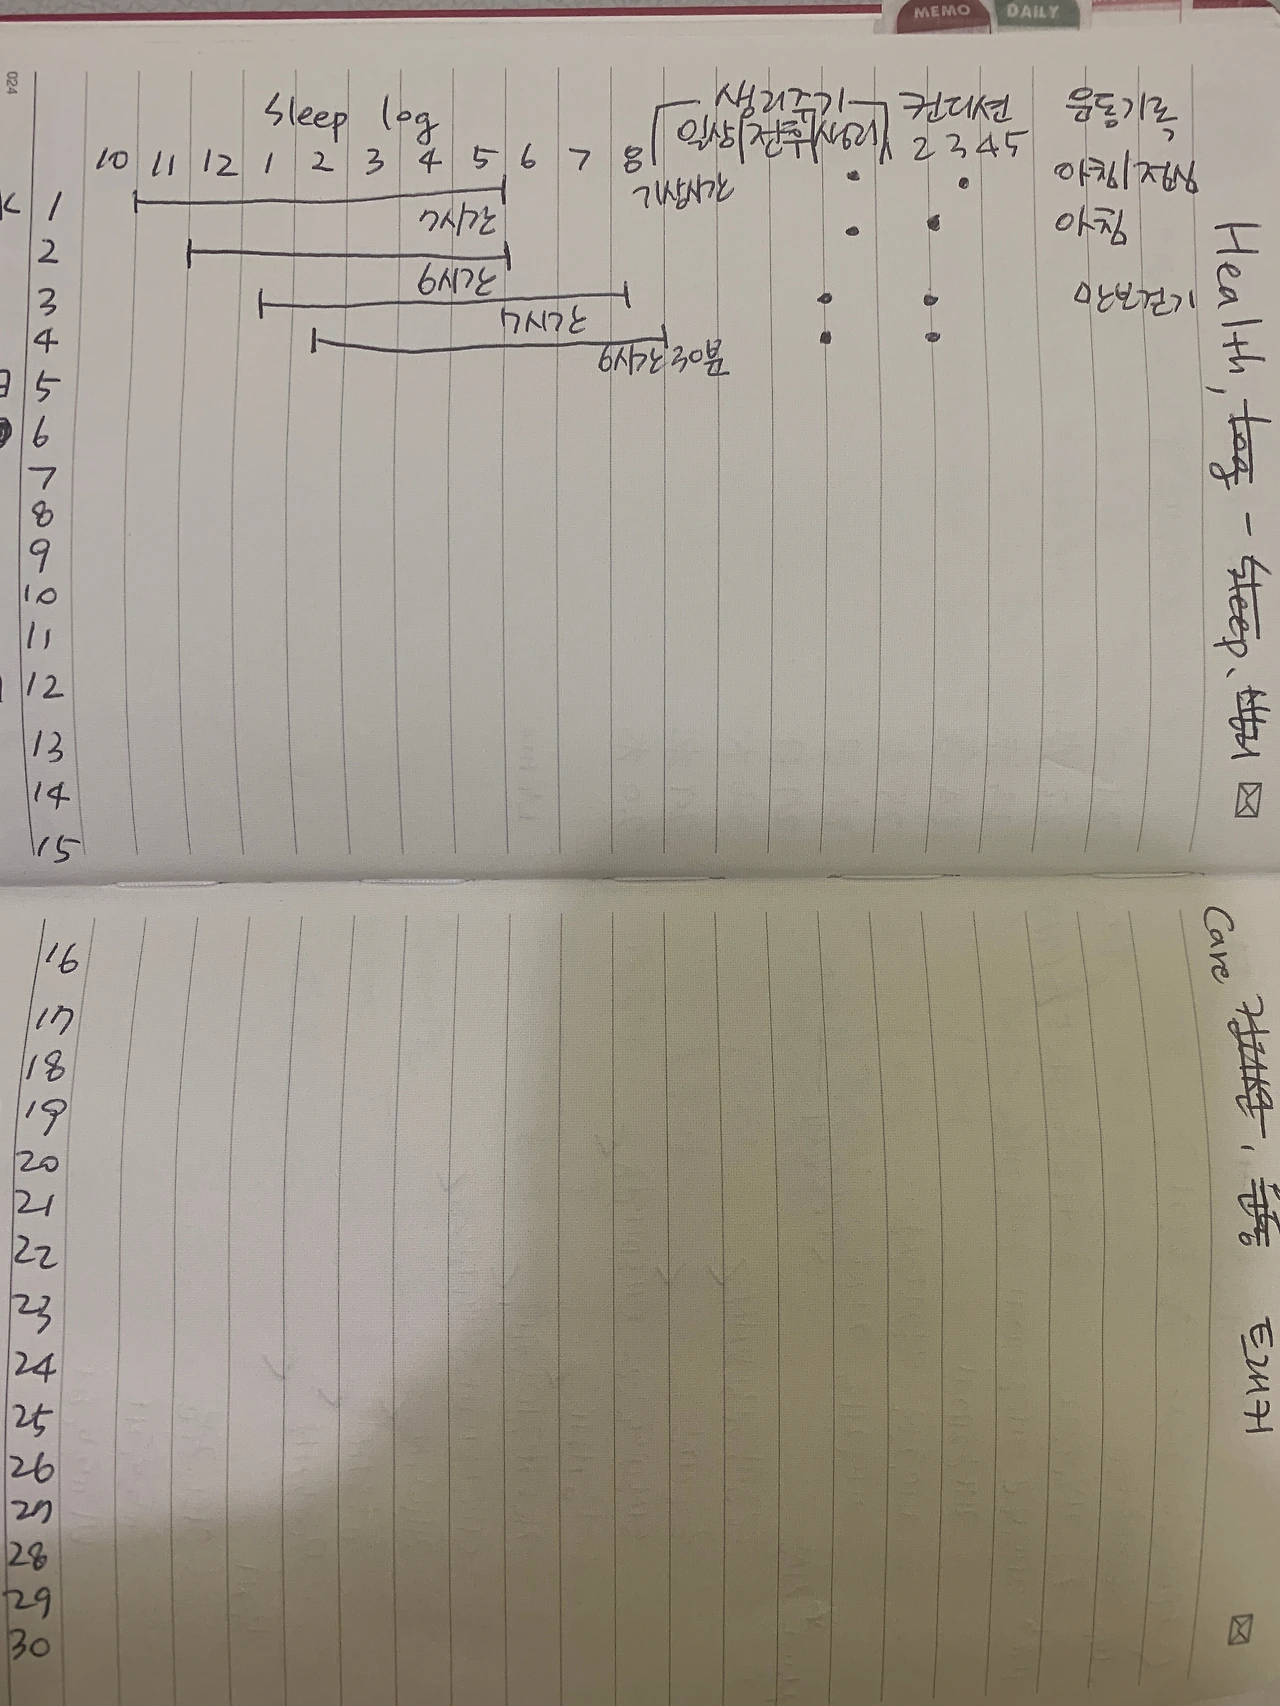 MEMO DAILY
024
Sleep log
생리주기 컨디션 운동기록
일상|전후|생리 2 3 4 5
10 11 12 1 2 3 4 5 6 7 8
기상시간
아침|점심
1
7시간
아침
2
6시간
3
7시간
만보걷기
4
6시간 30분
5
6
7
8
9
10
11
12
13
14
15
16
17
18
19
20
21
22
23
24
25
26
27
28
29
30
Health, Log - Sleep, 생리
Care 컨디션, 운동 트래커